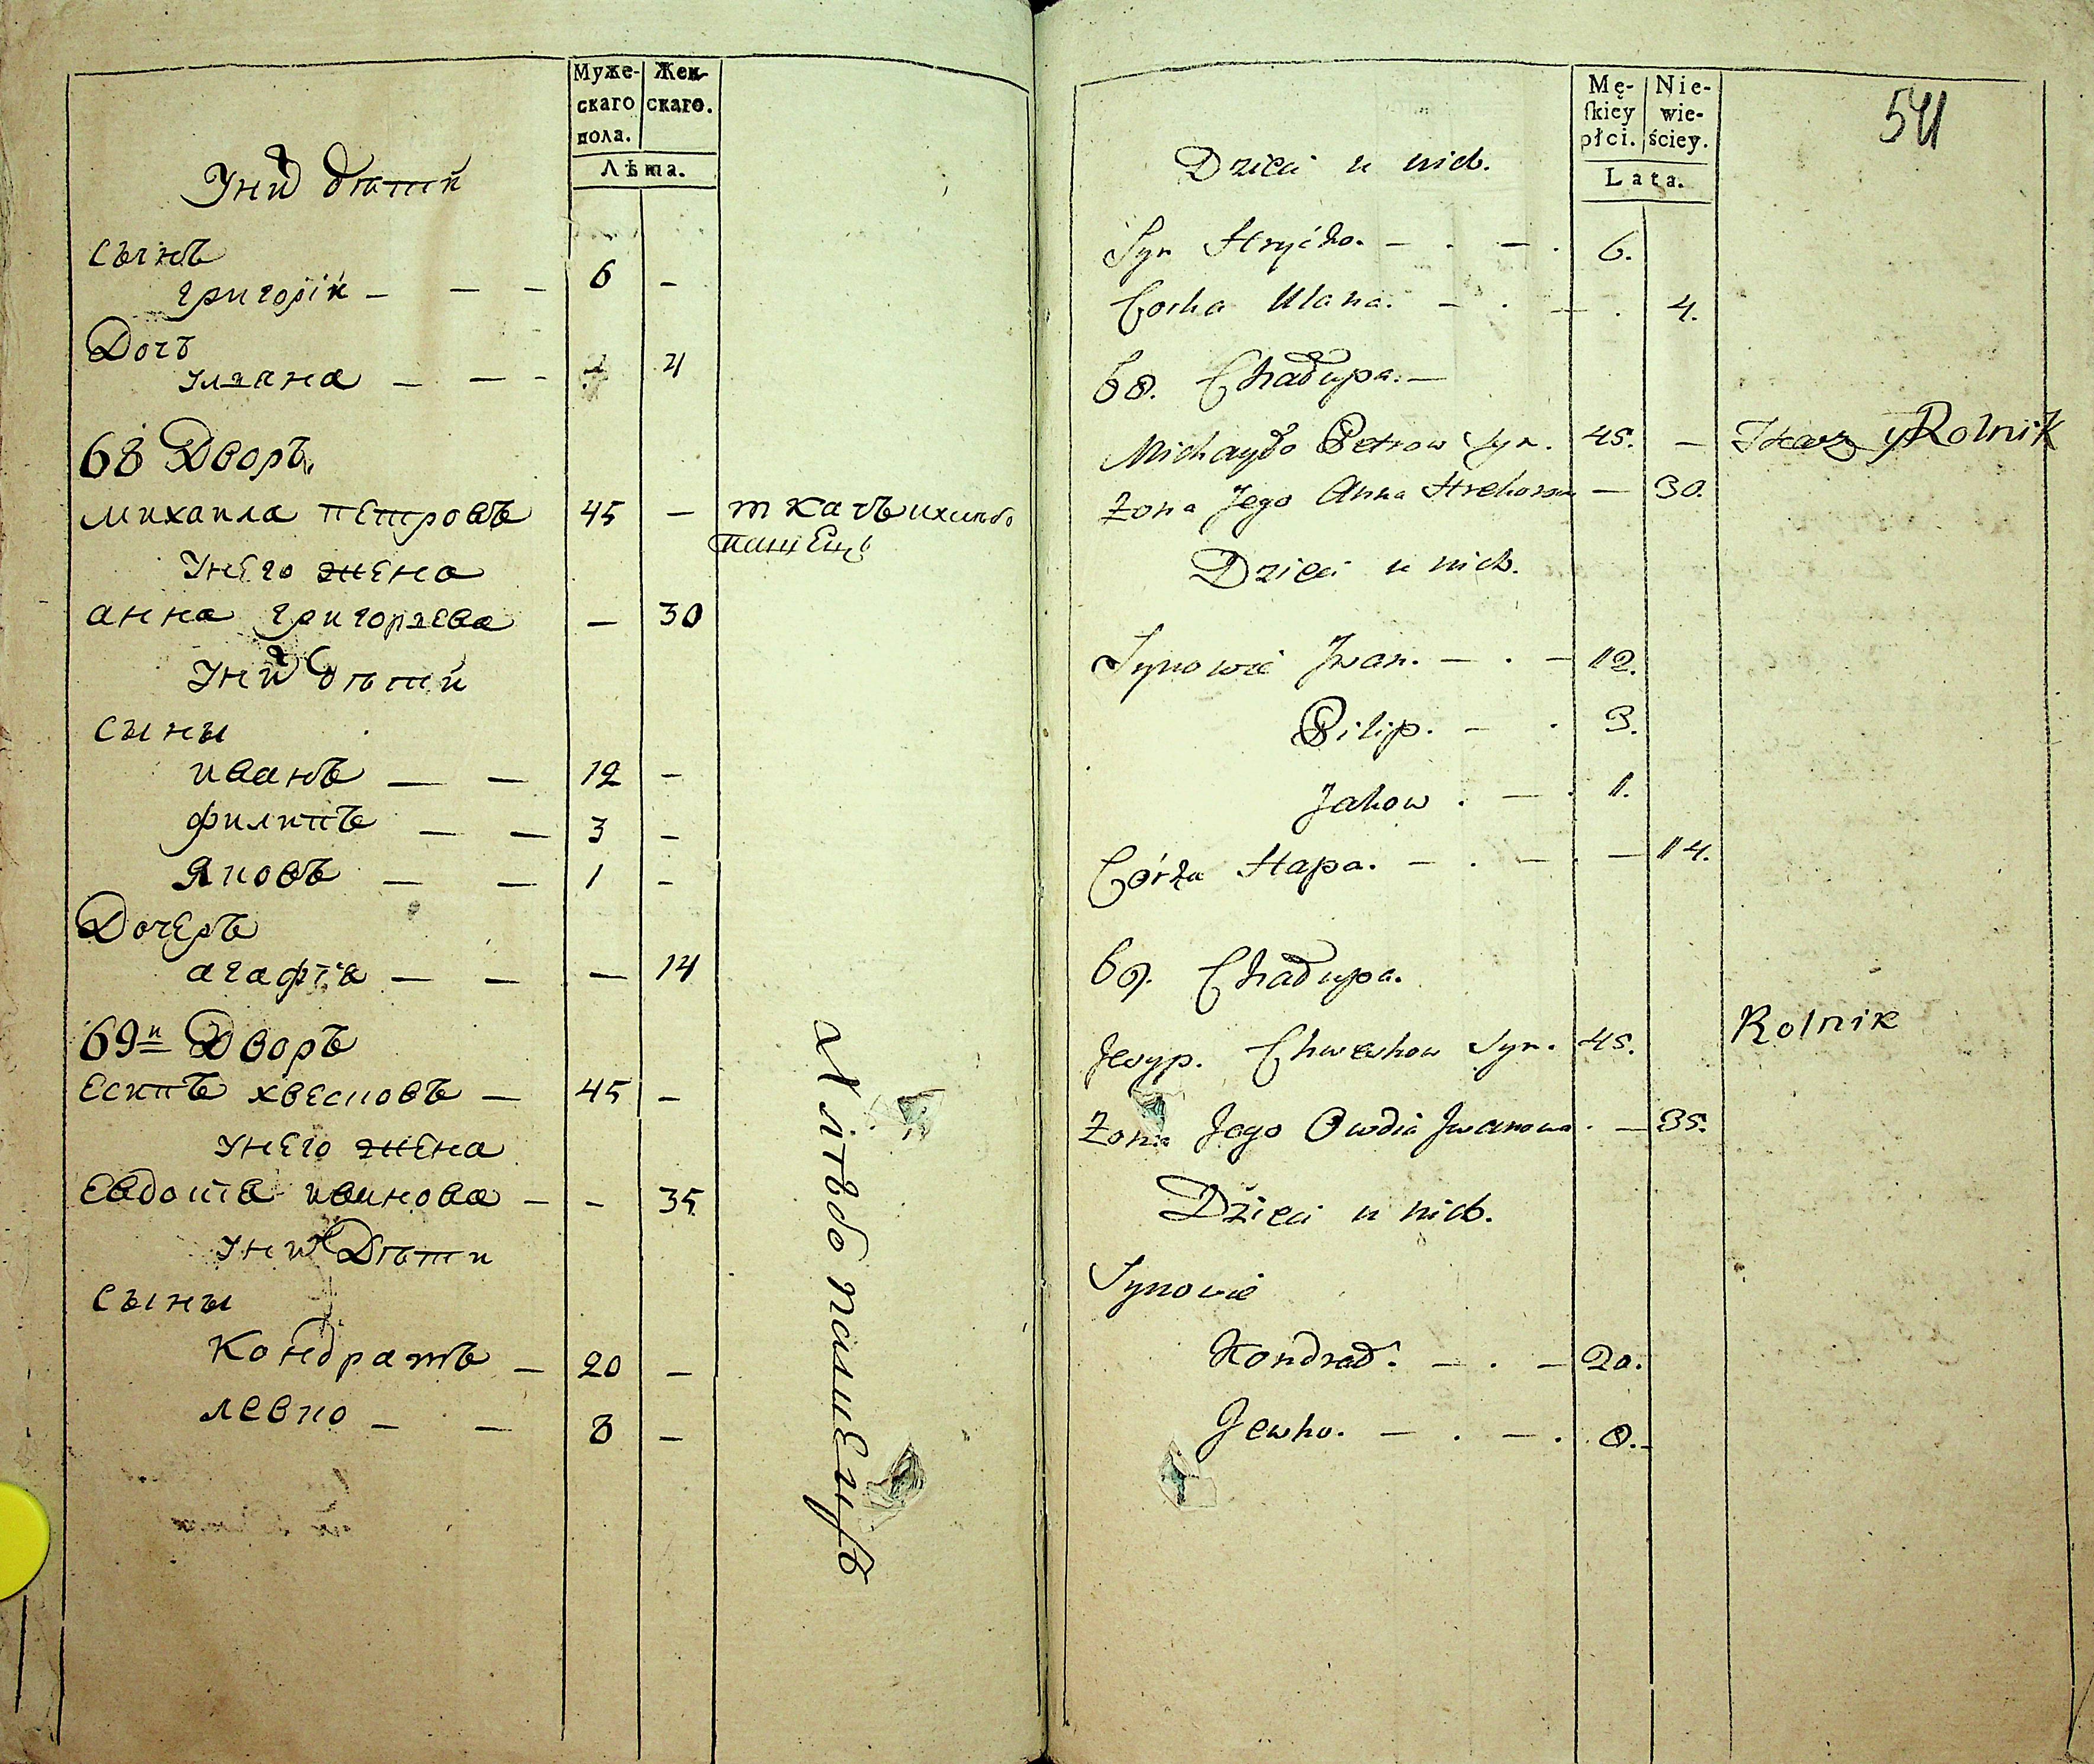 Муже-
скаго
пола.
Жен-
скаго.
Лѣта.
У них дѣтей
Сынъ
григорій — — — 6 —
Дочь
ульана — — - 4
68 Дворъ
михаила петровъ 45 — ткачь и хлѣбо
пашецъ
У него жена
анна григорьева — 30
У них дѣтей
сыны
иванъ — — 12 —
филипъ — — 3 —
Яковъ — — 1 —
Дочеръ
агафіа — — — 14
69й Дворъ
есипъ хвесковъ — 45 —
У него жена
Евдокіа иванова — - 35
У них Дѣти
сыны
Кондратъ — 20 —
левко — — 8 —
Хлѣбопашецъ
Mę-
skiey
płci.
Nie-
wie-
ściey.
Lata.
541
Dzieci u nich.
Syn Hryćko. — . — . 6.
Corka Ulana. — . — . 4.
68. Chałupa. —
Michayło Petrow Syn. 45. — Tkacz y Rolnik
Żona Jego Anna Hrehorowa — 30.
Dzieci u nich.
Synowie Jwan. — . — 12.
Pilip. — . 3.
Jakow . — . 1.
Córka Hapa. — . — . — 14.
69. Chałupa.
Jesyp. Chweskow Syn. 45. Rolnik
Żona Jego Owdia Jwanowa. — 35.
Dzieci u nich.
Synowie
Kondrad. — . — 20.
Lewko. — . — . 8. -